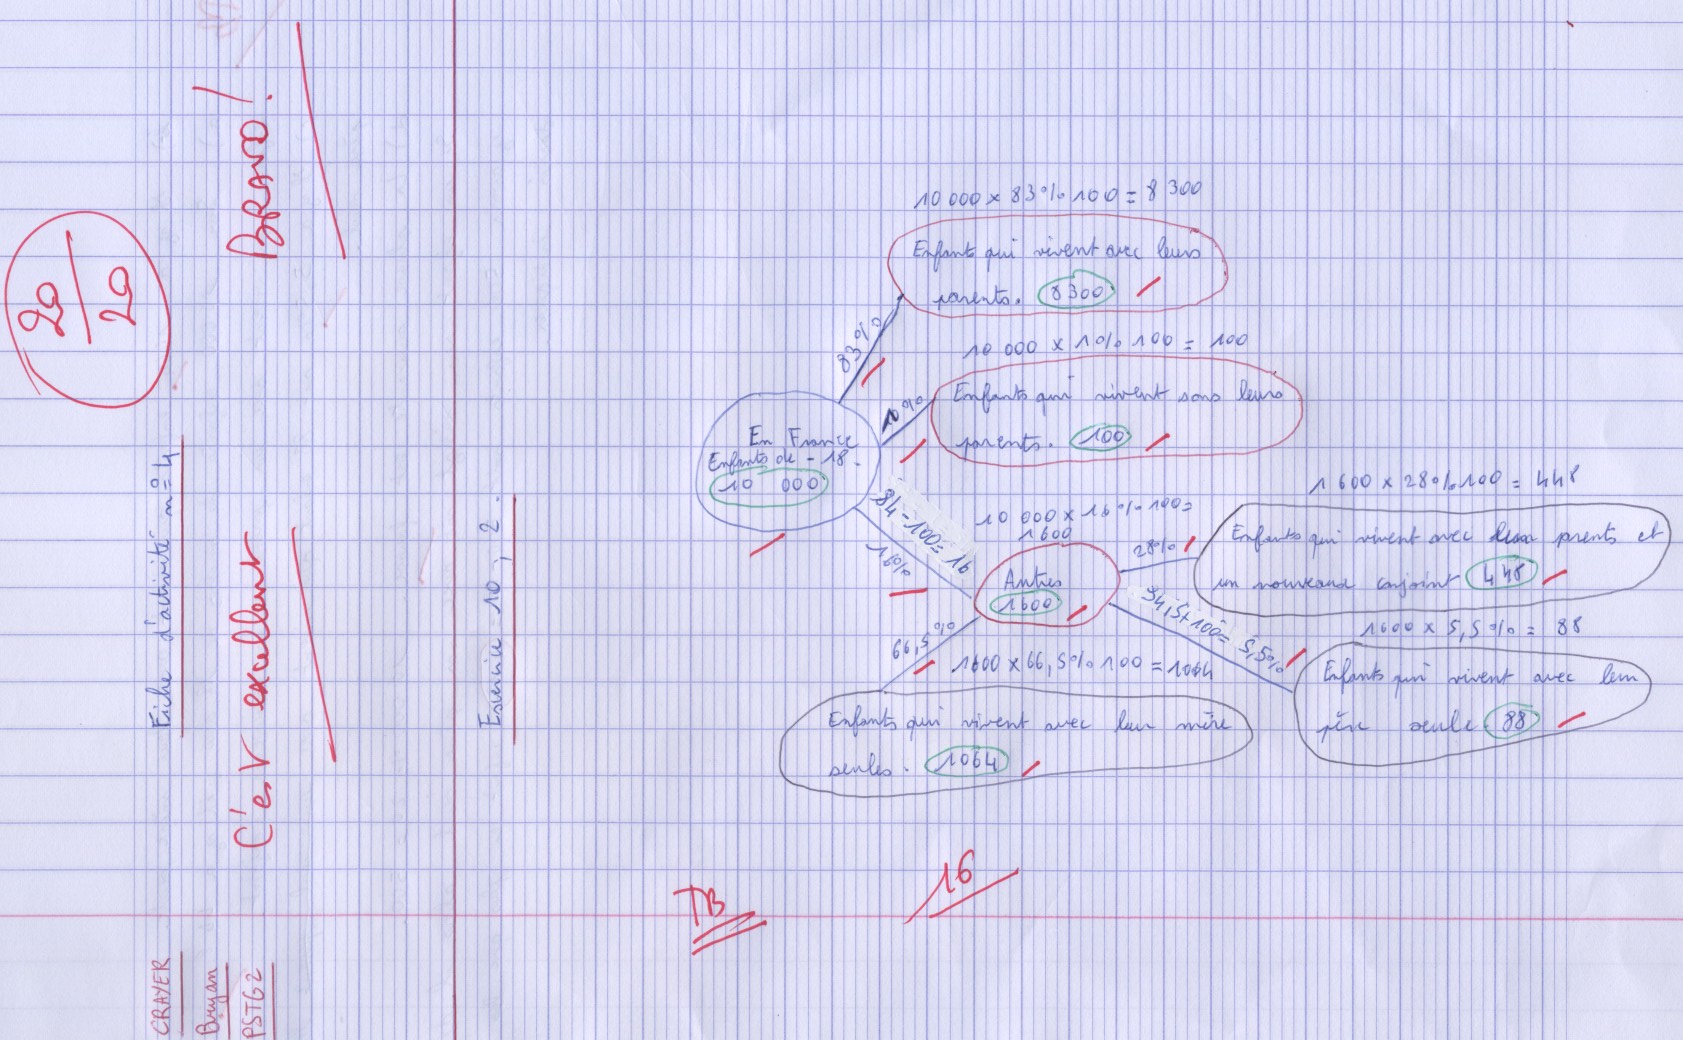 CRAYER
Bryan
PSTG2
Fiche d'activité n°4
Exercice 10, 2.
20/20
BRAVO!
C'est excellent
10 000 x 83% 100 = 8 300
Enfants qui vivent avec leurs
parents. 8300
83%
10 000 x 1% 100 = 100
Enfants qui vivent sans leurs
parents. 100
10%
En France
Enfants de - 18.
10 000
84-100= 16
16%
10 000 x 16% 100=
1600
Autres
1600
28%
1 600 x 28% 100 = 448
Enfants qui vivent avec deux parents et
un nouveaux conjoint 448
34,5+100= 5,5%
1600 x 5,5% = 88
Enfants qui vivent avec leur
père seule 88
66,5%
1600 x 66,5% 100 = 1064
Enfants qui vivent avec leur mère
seules. 1064
TB
16